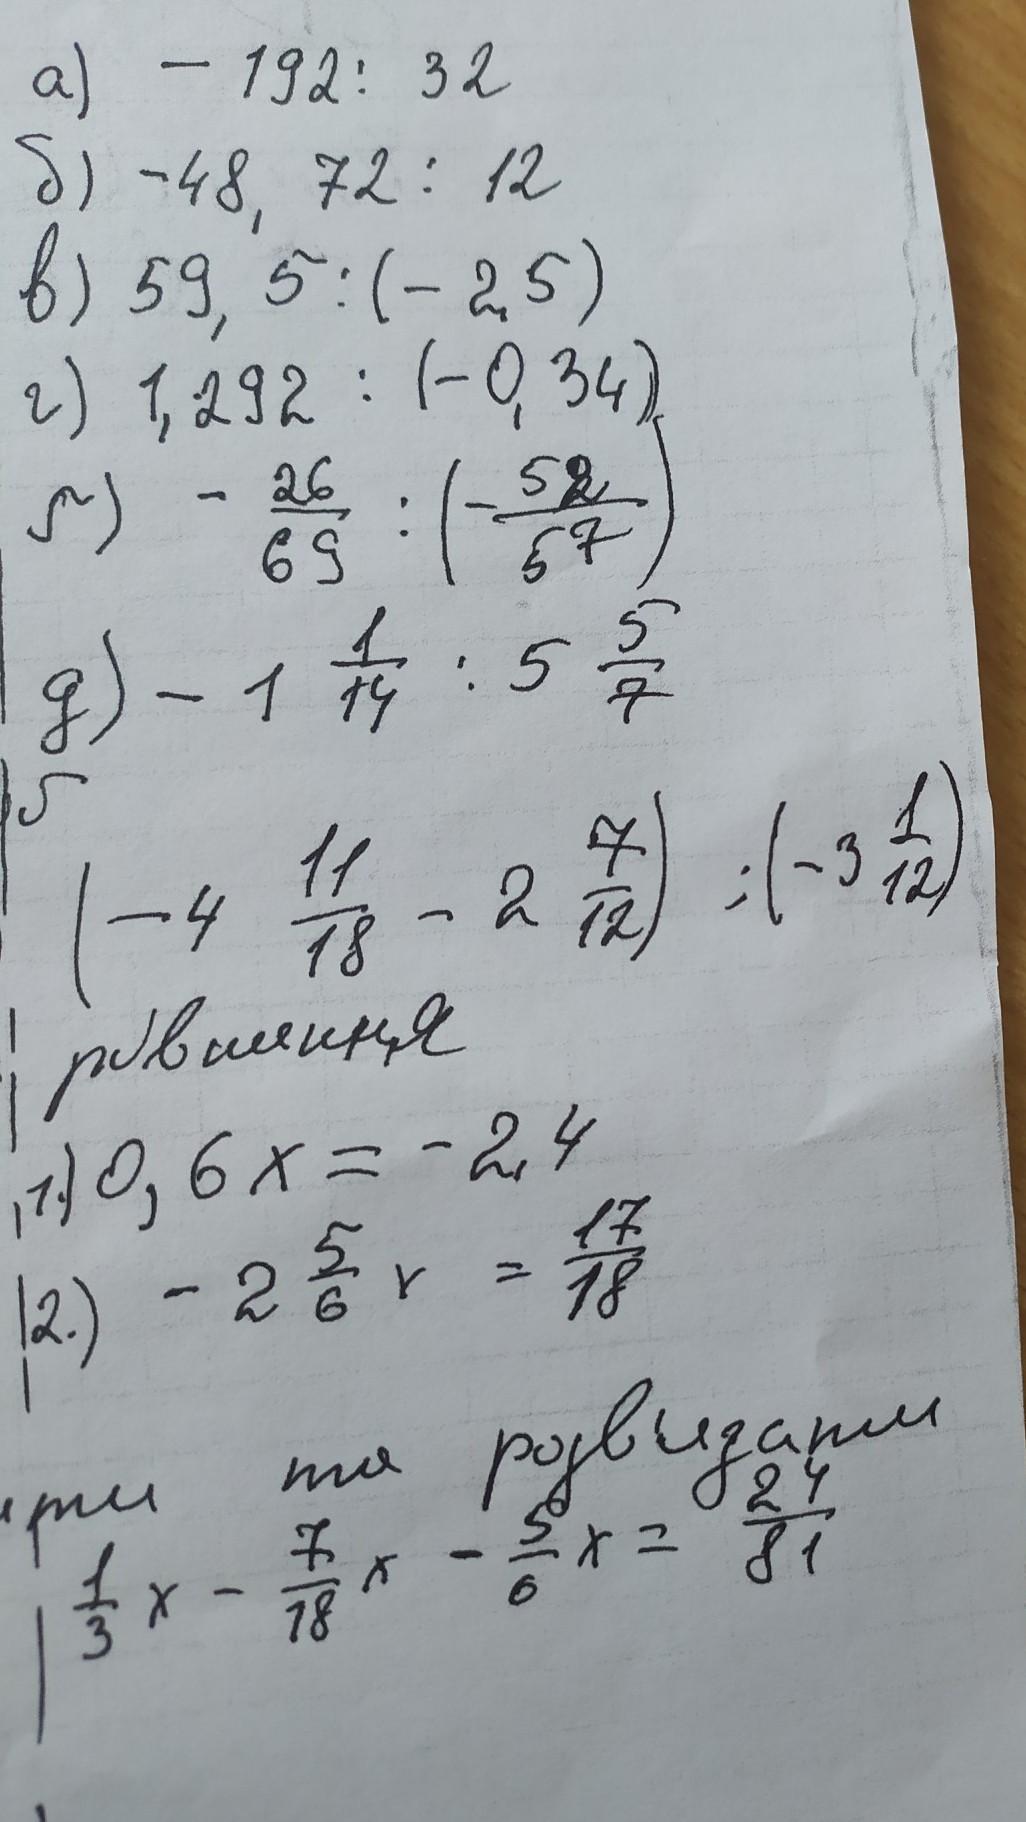 а) - 192 : 32
б) -48,72 : 12
в) 59,5 : (-2,5)
г) 1,292 : (-0,34)
ґ) - 26/69 : (- 52/57)
д) - 1 1/14 : 5 5/7
(-4 11/18 - 2 7/12) : (-3 1/12)
рівняння
1.) 0,6x = -2,4
2.) - 2 5/6 x = 17/18
та розв'язати
1/3 x - 7/18 x - 5/6 x = 24/81